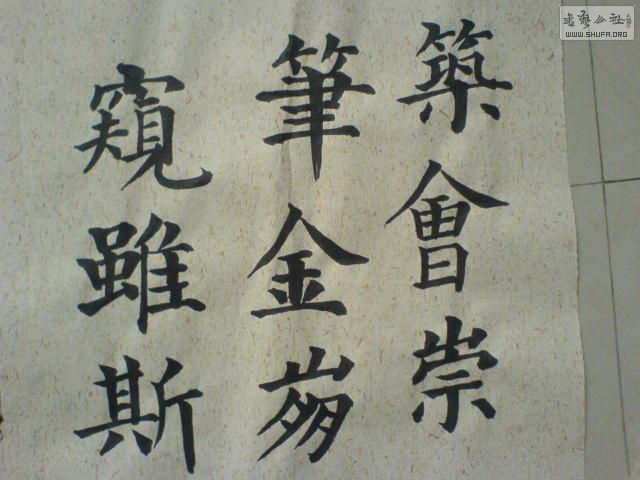 築會崇
筆金岁
窺雖斯
书艺公社
WWW.SHUFA.ORG